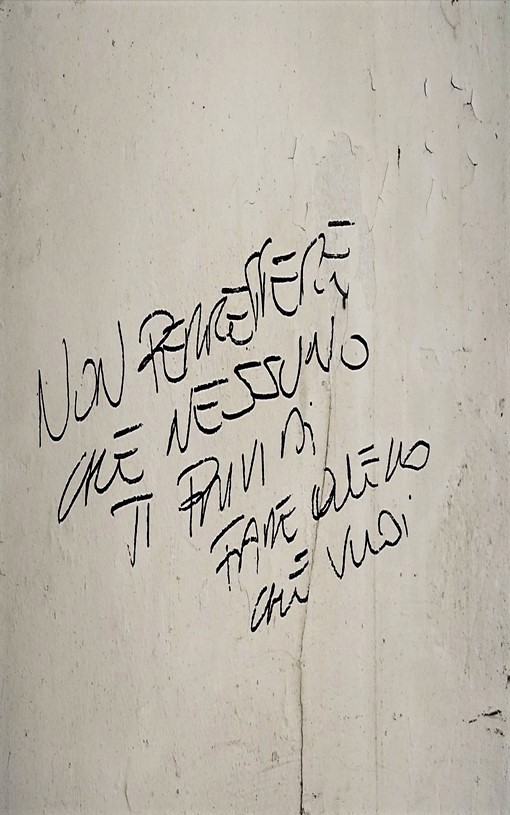 NON PERMETTERE
CHE NESSUNO
TI PRIVI DI
FARE QUELLO
CHE VUOI